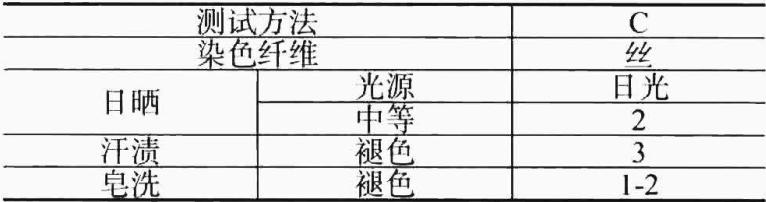 测试方法 C
染色纤维 丝
日晒 光源 日光
中等 2
汗渍 褪色 3
皂洗 褪色 1-2